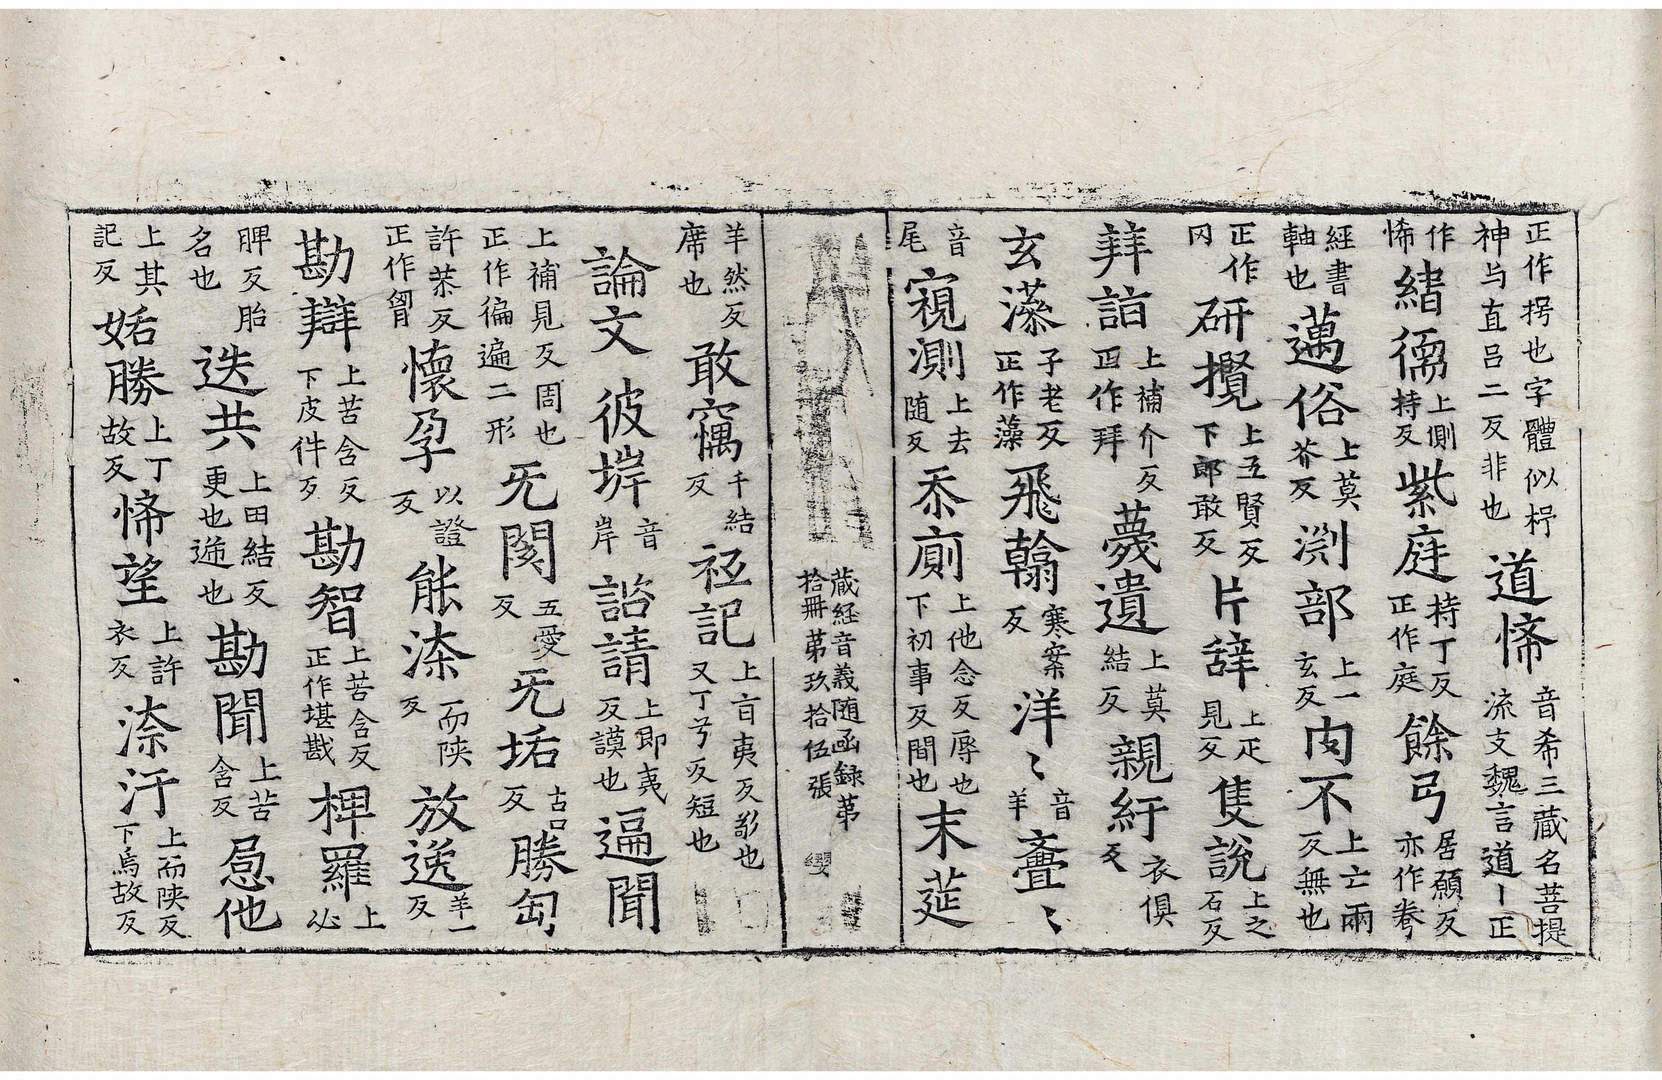 正作拐也字體似枴神与直吕二反非也道悕音希三藏名菩提流支魏言道丨正
作悕緒儒上側持反紫庭持丁反正作庭餘弓居願反亦作卷
經書軸也邁俗上莫芥反渕部上一玄反内不上亡兩反無也
正作冈研攬上五賢反下郎敢反片辞上疋見反隻説上之石反
拜詣上補介反正作拜薎遺上莫結反親紆衣俱反
玄藻子老反正作藻飛翰寒案反洋〻音羊亹〻
音尾窺測上去随反忝廁上他念反辱也下初事反間也末莚
藏経音義随函録第拾冊第玖拾伍張 纓
羊然反席也敢竊千結反祇記上百夷反敬也又丁兮反短也
論文彼垾音岸諮請上即夷反謨也逼聞
上補見反周也正作徧遍二形旡閡五愛反旡垢古口反勝匈
許㳟反正作胷懷孕以證反能㴃而陝反放逸羊一反
勘辯上苦含反下皮件反勘智上苦含反正作堪戡椑羅上必
脾反胎名也迭共上田結反更也遞也勘聞上苦含反忌他
上其記反姤勝上丁故反悕望上許衣反㴃汙上而陝反下烏故反